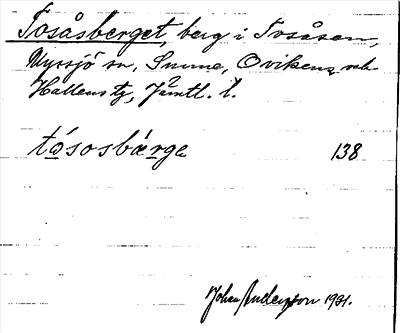 Tosåsberget, berg i Tosåsen,
Myssjö sn, Sunne, Ovikens och
Hallens tg, Jämtl. l.
tósosbærge 138
Johan Anderson 1931.